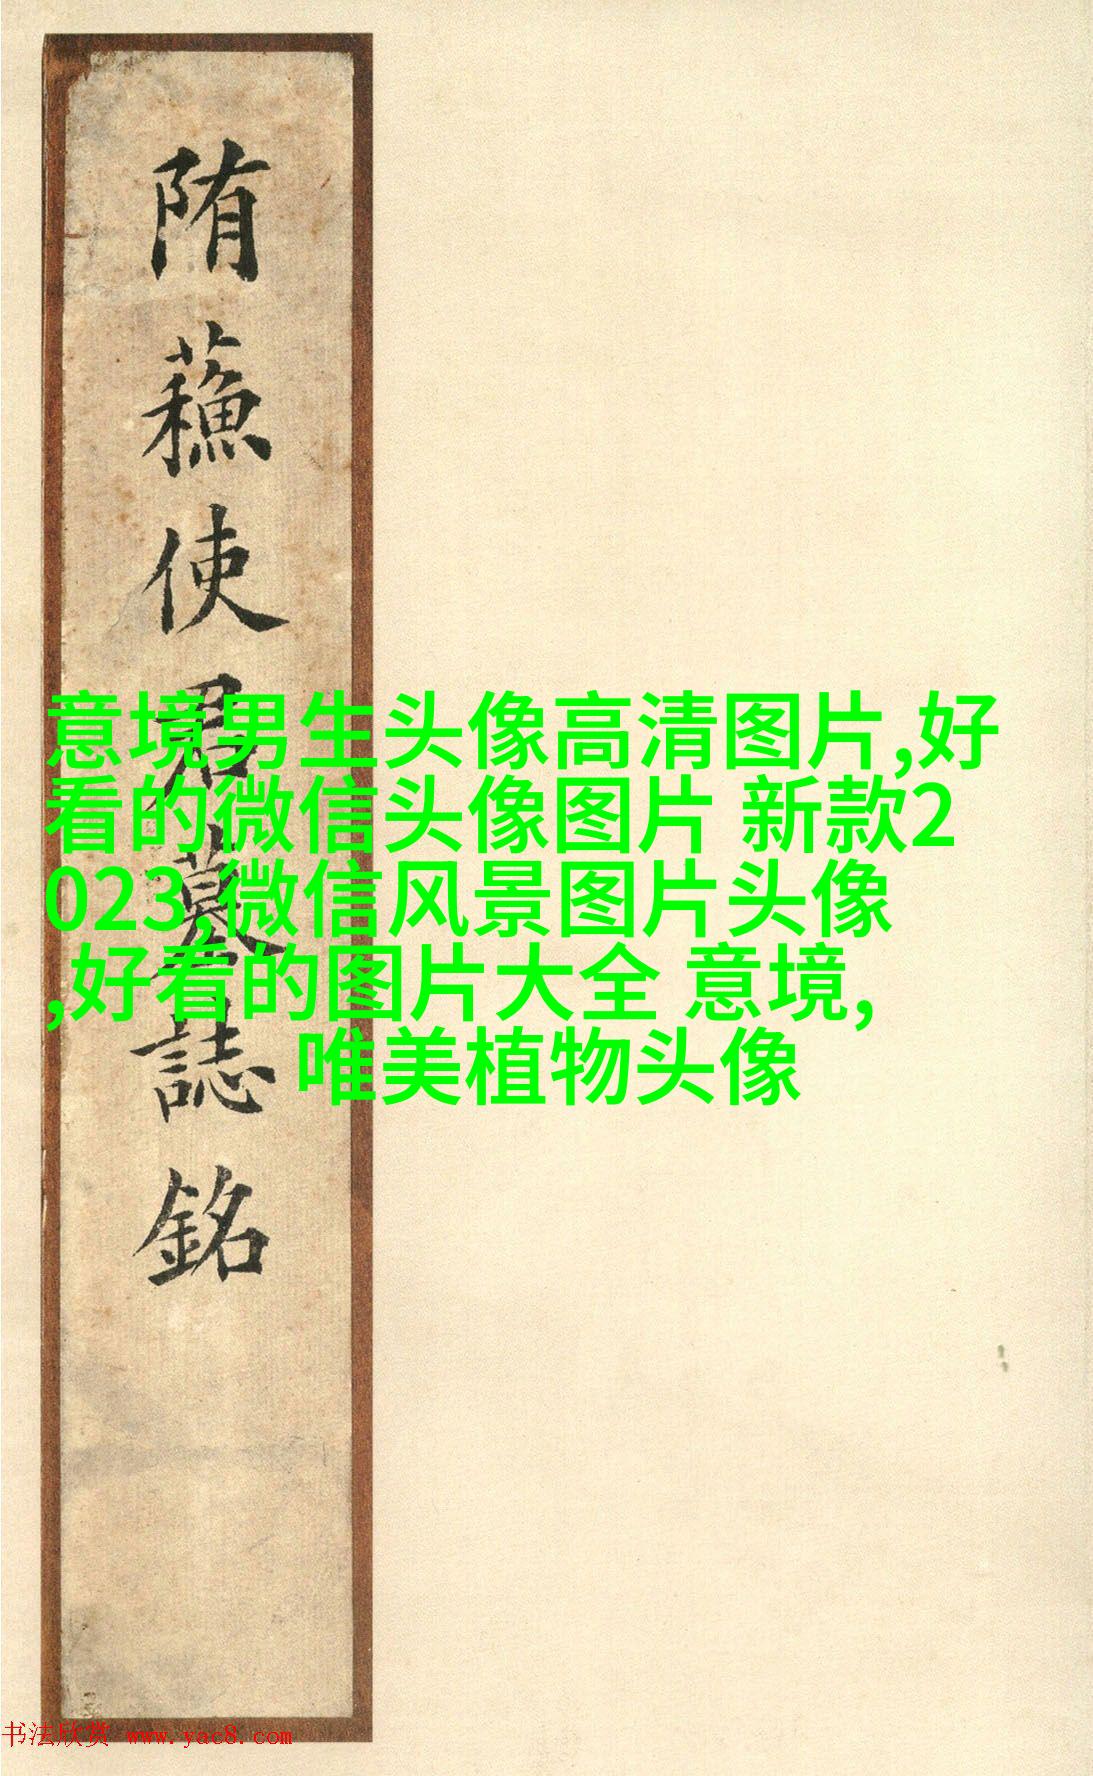 隋蘓使君墓誌銘
意境男生头像高清图片,好
看的微信头像图片 新款2
023,微信风景图片头像
,好看的图片大全 意境,
唯美植物头像
书法欣赏 www.yac8.com